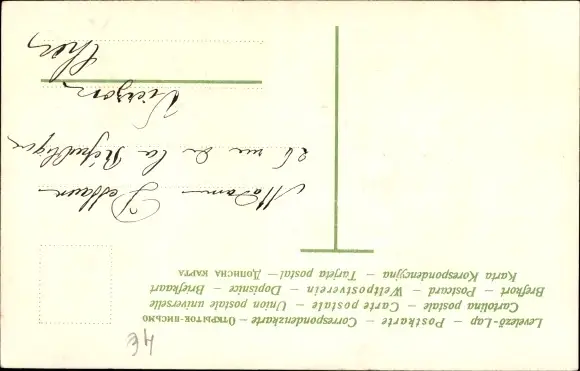 Levelező-Lap — Postkarte — Correspondenzkarte — Открытое-письмо
Cartolina postale — Carte postale — Union postale universelle
Brefkort — Postcard — Weltpostverein — Dopisnice — Briefkaart
Karta Korespondencyjna — Tarjeta postal — Дописна карта
Madame
26 rue de la République
Vierzon
Cher
4€